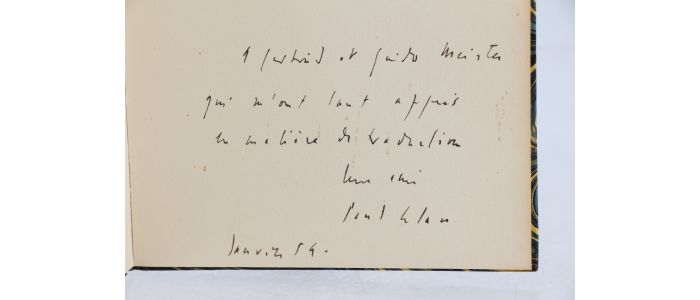 A Gertrud et Guido Meister
qui m'ont tant appris
en matière de traduction
leur ami
Janvier 54.